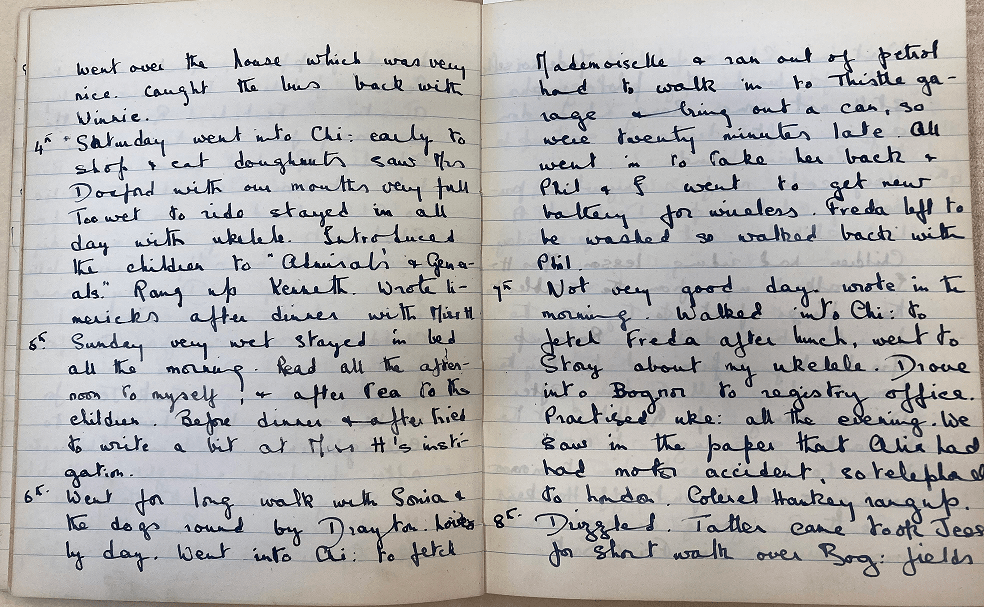 went over the house which was very
nice. Caught the bus back with
Winnie.
4th. Saturday went into Chi: early to
shop & eat doughnuts saw Mrs
Doxford with our mouths very full
Too wet to ride stayed in all
day with ukelele. Introduced
the children to "Admirals & Gener-
als." Rang up Kenneth. Wrote li-
mericks after dinner with Miss H
5th. Sunday very wet stayed in bed
all the morning. Read all the after-
noon to myself, & after tea to the
children. Before dinner & after tried
to write a bit at Miss H's insti-
gation.
6th. Went for long walk with Sonia &
the dogs round by Drayton.
by day. Went into Chi: to fetch
Mademoiselle & ran out of petrol
had to walk in to Thistle ga-
rage & bring out a can, so
were twenty minutes late. All
went in to take her back &
Phil & I went to get new
battery for wireless. Freda left to
be washed so walked back with
Phil.
7th. Not very good day wrote in the
morning. Walked into Chi: to
fetch Freda after lunch, went to
Story about my ukelele. Drove
into Bognor to registry office.
Practised uke: all the evening. We
saw in the paper that had
had motor accident, so
to London. Colonel Hankey rang up.
8th. Drizzled. came took
for short walk over Bog: fields